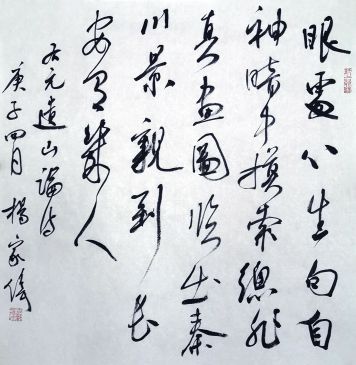 眼處心生句自
神暗中摸索總非
真畫圖臨出秦
川景親到長
安有幾人
右元遺山論詩
庚子四月楊家